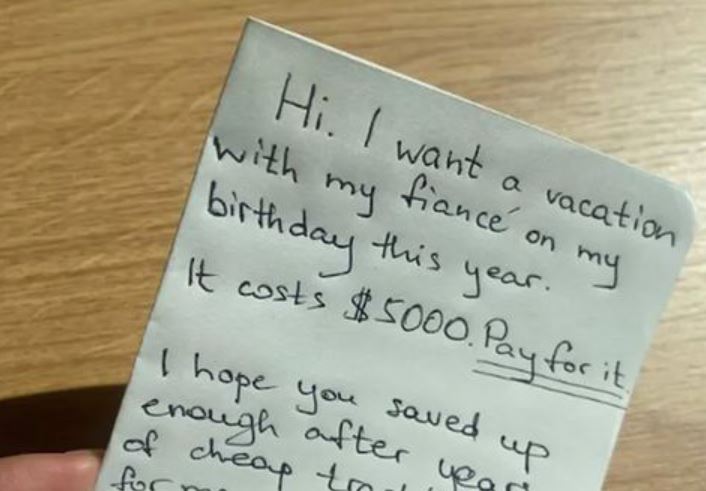 Hi. I want a vacation
with my fiancé on my
birthday this year.
It costs $5000. Pay for it
I hope you saved up
enough after
of cheap
for